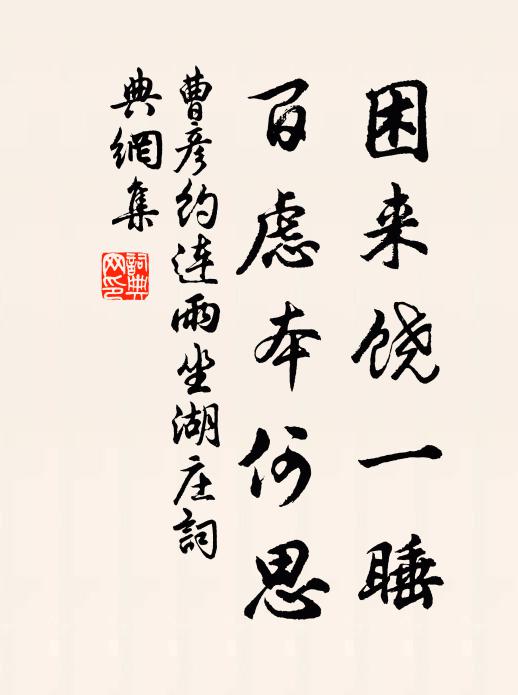 困来饶一睡
百虑本何思
曹彦约连雨坐湖庄詞
典網集
詞典
网印